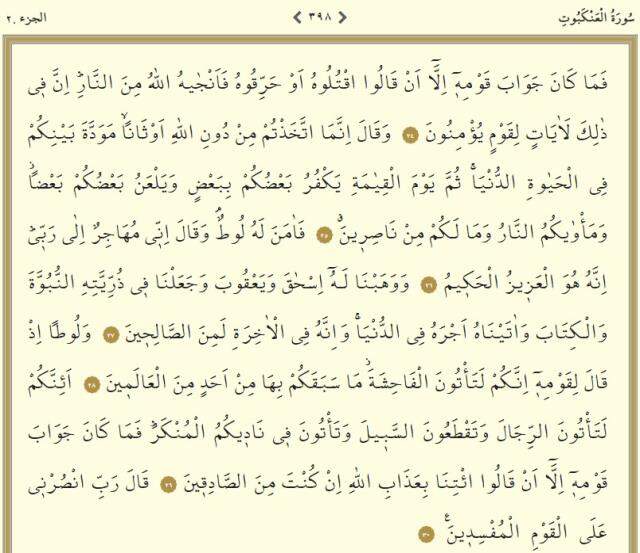 سُورَةُ الْعَنْكَبُوتِ ٣٩٨ الجزء ٢٠
فَمَا كَانَ جَوَابَ قَوْمِه۪ٓ اِلَّٓا اَنْ قَالُوا اقْتُلُوهُ اَوْ حَرِّقُوهُ فَاَنْجٰيهُ اللّٰهُ مِنَ النَّارِۜ اِنَّ ف۪ي
ذٰلِكَ لَاٰيَاتٍ لِقَوْمٍ يُؤْمِنُونَ ٢٤ وَقَالَ اِنَّمَا اتَّخَذْتُمْ مِنْ دُونِ اللّٰهِ اَوْثَانًاۙ مَوَدَّةَ بَيْنِكُمْ
فِي الْحَيٰوةِ الدُّنْيَاۚ ثُمَّ يَوْمَ الْقِيٰمَةِ يَكْفُرُ بَعْضُكُمْ بِبَعْضٍ وَيَلْعَنُ بَعْضُكُمْ بَعْضًاۘ
وَمَأْوٰيكُمُ النَّارُ وَمَا لَكُمْ مِنْ نَاصِر۪ينَۗ ٢٥ فَاٰمَنَ لَهُ لُوطٌۢ وَقَالَ اِنّ۪ي مُهَاجِرٌ اِلٰى رَبّ۪يۜ
اِنَّهُ هُوَ الْعَز۪يزُ الْحَك۪يمُ ٢٦ وَوَهَبْنَا لَهُٓ اِسْحٰقَ وَيَعْقُوبَ وَجَعَلْنَا ف۪ي ذُرِّيَّتِهِ النُّبُوَّةَ
وَالْكِتَابَ وَاٰتَيْنَاهُ اَجْرَهُ فِي الدُّنْيَاۚ وَاِنَّهُ فِي الْاٰخِرَةِ لَمِنَ الصَّالِح۪ينَ ٢٧ وَلُوطًا اِذْ
قَالَ لِقَوْمِه۪ٓ اِنَّكُمْ لَتَأْتُونَ الْفَاحِشَةَۘ مَا سَبَقَكُمْ بِهَا مِنْ اَحَدٍ مِنَ الْعَالَم۪ينَ ٢٨ اَئِنَّكُمْ
لَتَأْتُونَ الرِّجَالَ وَتَقْطَعُونَ السَّب۪يلَ وَتَأْتُونَ ف۪ي نَاد۪يكُمُ الْمُنْكَرَۜ فَمَا كَانَ جَوَابَ
قَوْمِه۪ٓ اِلَّٓا اَنْ قَالُوا ائْتِنَا بِعَذَابِ اللّٰهِ اِنْ كُنْتَ مِنَ الصَّادِق۪ينَ ٢٩ قَالَ رَبِّ انْصُرْن۪ي
عَلَى الْقَوْمِ الْمُفْسِد۪ينَ۟ ٣٠